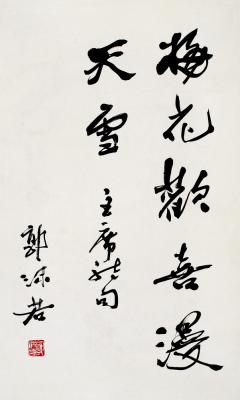 梅花歡喜漫
天雪
主席詩句
郭沫若